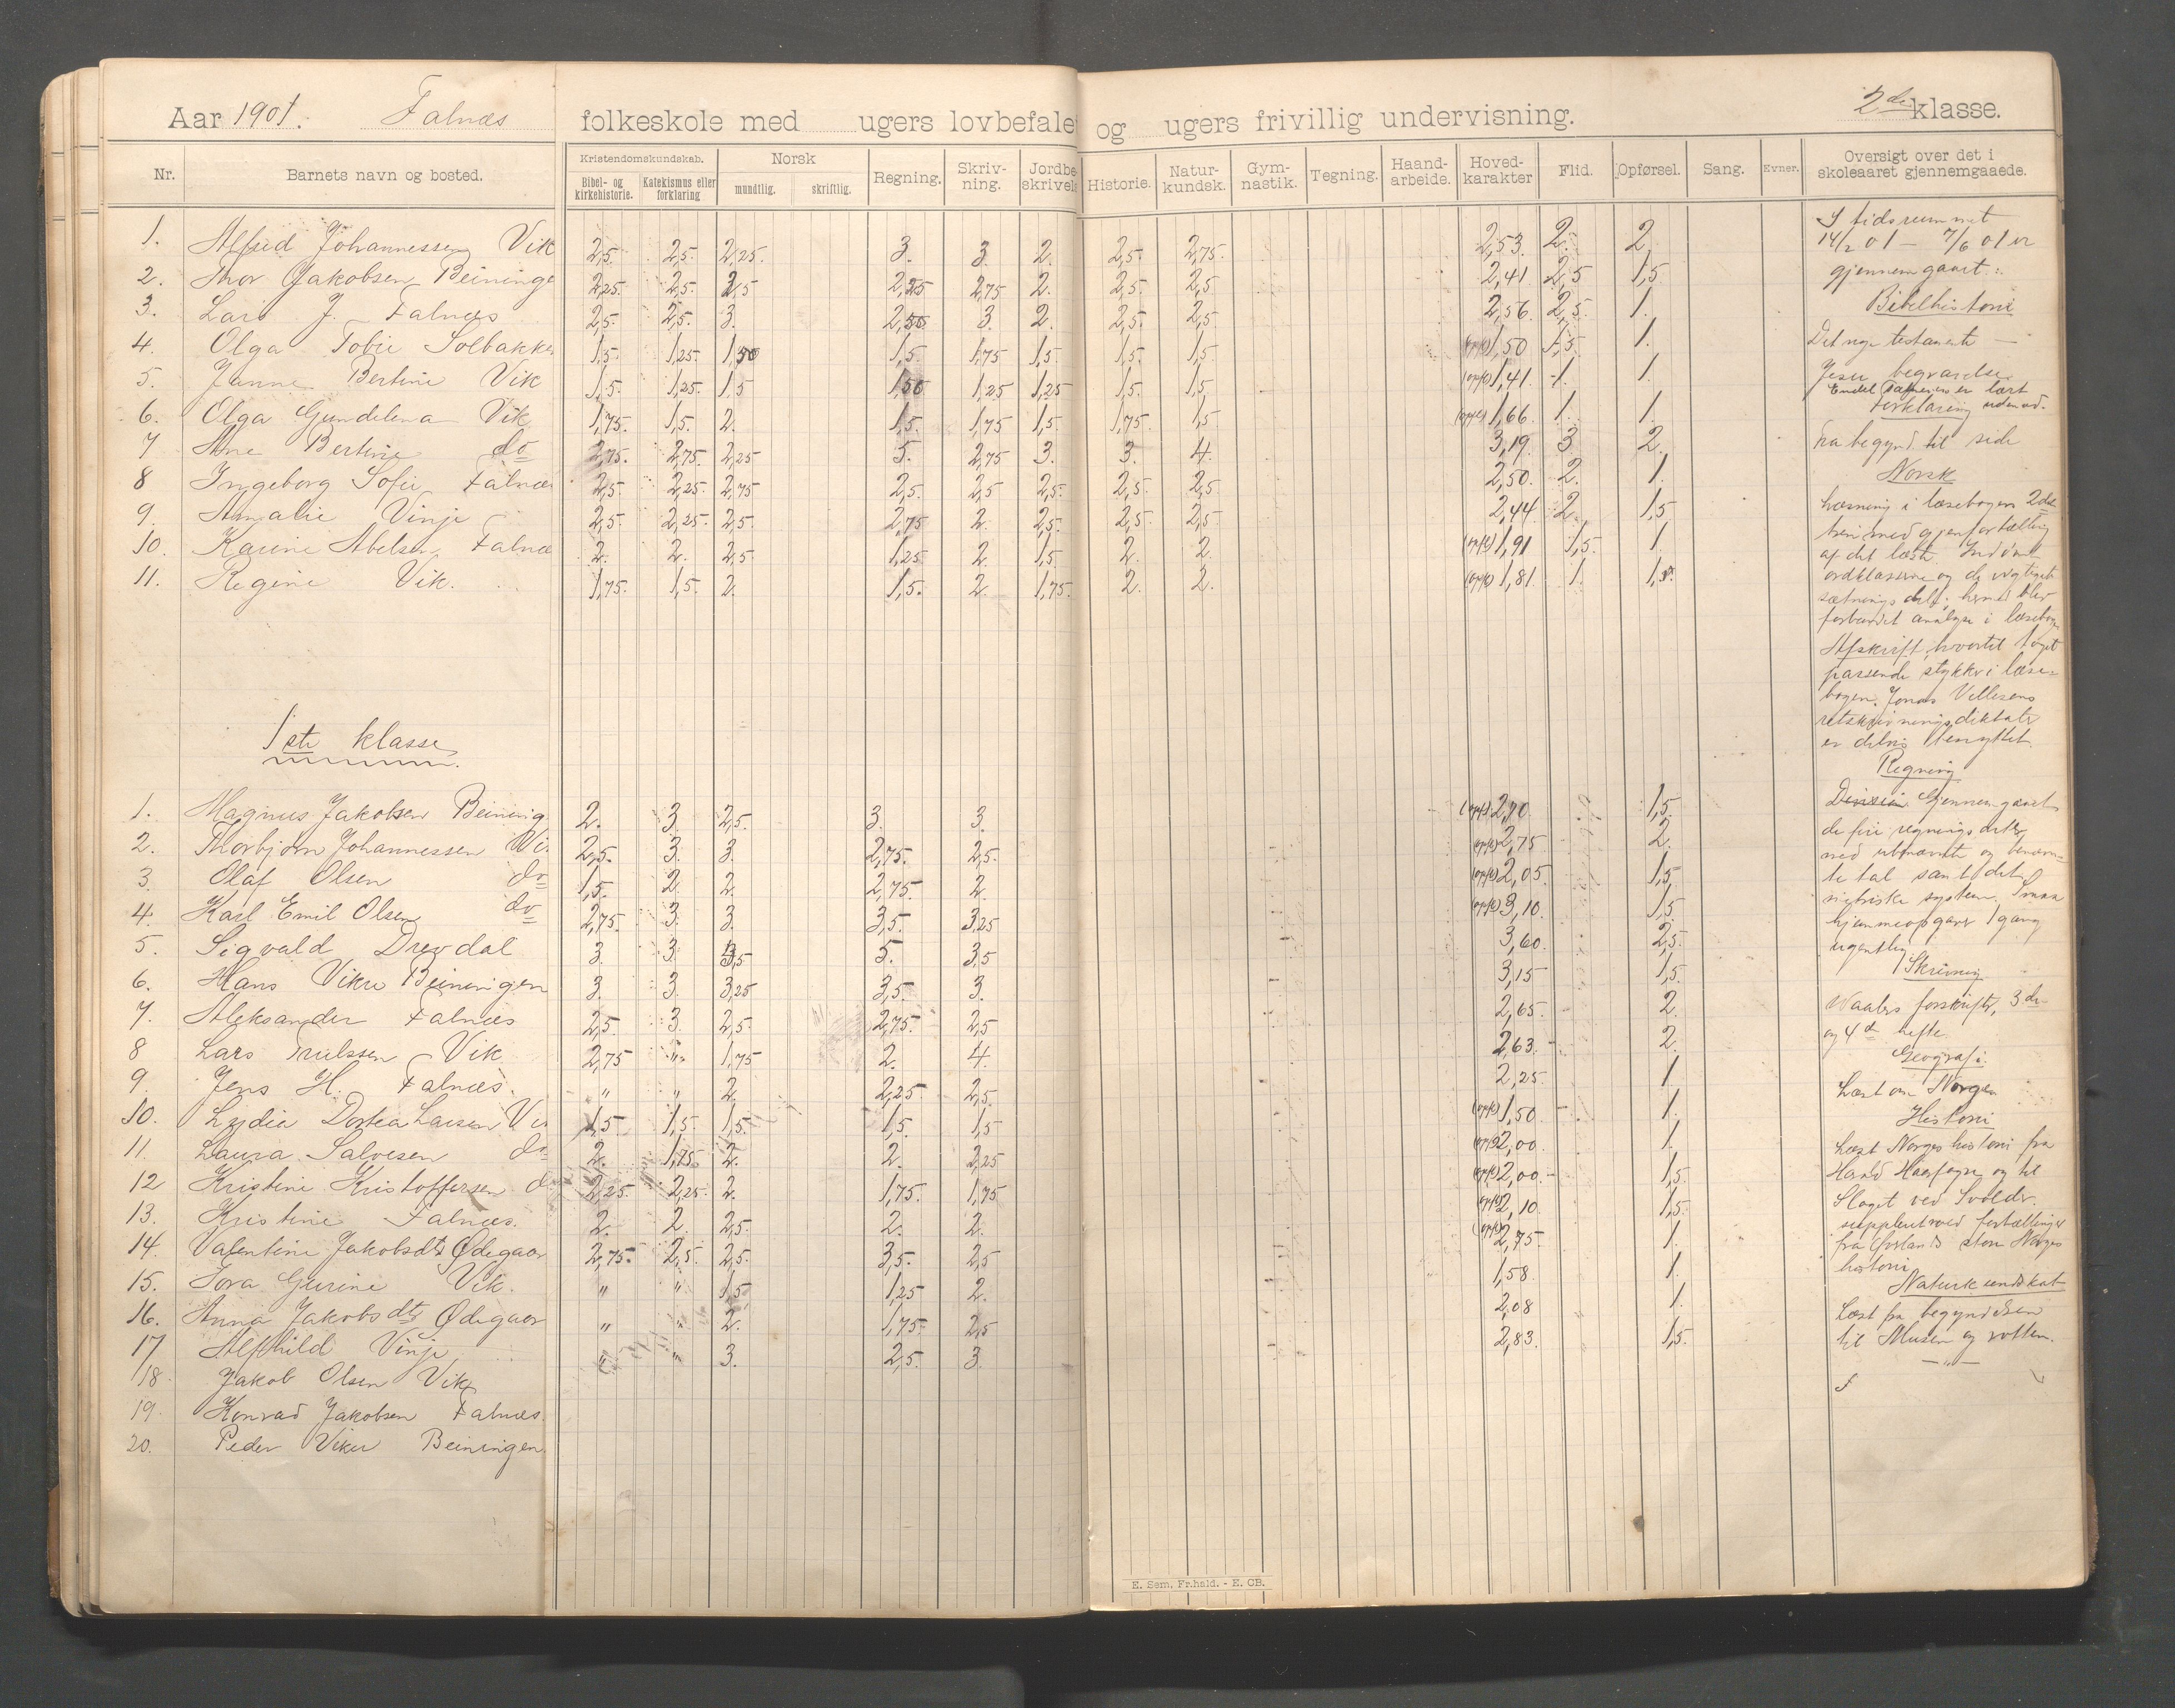 Aar 1901. Falnæs folkeskole med ugers lovbefale og ugers frivillig undervisning. 2de klasse.
Nr. Barnets navn og bosted. Kristendomskundskab. Bibel- og kirkehistorie. Katekismus eller forklaring Norsk mundtlig. skriftlig. Regning. Skriv-ning. Jordbe skrivels Historie. Natur-kundsk. Gym-nastik. Tegning. Haand-arbeide. Hoved-karakter Flid. Opførsel. Sang. Evner. Oversigt over det i skoleaaret gjennemgaaede.
1. Alfred Johannessen Vik 2,5. 2,5. 2,25. 3. 3. 2. 2,5. 2,75. 2,53. 2. 2.
2. Thor Jakobsen Beininge 2,25. 2,5. 2,5 2,25 2,75 2. 2,5. 2,5. 2,41. 2,5 1,5
3. Lars J. Falnæs 2,5. 2,5. 3. 2,50 3. 2. 2,5. 2,5. 2,56. 2,5. 1.
4. Olga Tobie Solbakken 1,5. 1,25. 1,50 1,5. 1,75 1,5. 1,5. 1,5. (opf) 1,50 1,5. 1.
5. Janne Bertine Vik 1,5. 1,25. 1,5 1,50 1,25 1,25 1,5. 1,5. (opf) 1,41. 1. 1.
6. Olga Gundelena Vik 1,75. 1,5. 2. 1,5. 1,75 1,5. 1,75. 1,5 (opf) 1,66. 1. 1.
7 Ane Bertine do 2,75. 2,75. 2,25 5. 2,75 3. 3. 4. 3,19. 3. 2.
8 Ingeborg Sofie Falnæs 2,5. 2,25. 2,75 2,5. 2,5 2,5. 2,5. 2,5. 2,50. 2. 1.
9. Amalie Vinje 2,5. 2,25. 2,5. 2,75 2. 2,5. 2,5. 2,5. 2,44. 2. 1,5
10. Karine Abelsen Falnæ 2. 2. 2,5. 1,25 2. 1,5 2. 2. (opf) 1,91 1,5. 1.
11. Regine Vik. 1,75. 1,5. 2. 1,5. 2. 1,75. 2. 2. (opf) 1,81. 1. 1,5.
1ste klasse
1. Magnus Jakobsen Beining 2. 3. 2,5. 3. 3. (opf) 2,70. 1,5.
2. Thorbjørn Johannessen Vi 2,5. 3. 3. 2,75. 2,5. (opf) 2,75. 2.
3. Olaf Olsen do 1,5. 2. 2. 2,75. 2. (opf) 2,05. 1,5.
4. Karl Emil Olsen do 2,75. 3. 3. 3,5. 3,25 (opf) 3,10. 1,5.
5. Sigvald Drevdal 3. 3. 3,5 5. 3,5 3,60. 2,5.
6. Hans Vikre Beiningen 3. 3. 3,25 3,5. 3. 3,15 1,5.
7. Aleksander Falnæs 2,5. 3. 2,5. 2,75. 2,5 2,65. 2.
8 Lars Trulssen Vik 2,75 " 1,75 2. 4. 2,63. 2.
9. Jens H. Falnæs. " " 2. 2,25. 2,5. 2,25. 1.
10. Lydia Dortea Larsen Vi 1,5 1,5. 1,5. 1,5. 1,5 (opf) 1,50 1.
11. Laura Salvesen do 2. 1,75. 2. 2. 2,25 (opf) 2,00. 1.
12 Kristine Kristoffersen d 2,25. 2,25. 2. 1,75. 1,75 (opf) 2,00. 1,5.
13. Kristine Falnæs. 2. 2. 2,5. 2. 2. (opf) 2,10. 1,5.
14. Valentine Jakobsdtr Ødegaar 2,75. 2,5. 2,5. 3,5. 2,5 (opf) 2,75. 1.
15. Tora Gurine Vik. " " 1,5 1,25 2. 1,58. 1.
16. Anna Jakobsdtr Ødegaar " " 2. 1,75. 2,5 2,08 1.
17 Alfhild Vinje " " 3. 2,5. 3. 2,83. 1,5.
18. Jakob Olsen Vik
19. Konrad Jakobsen Falnæs.
20. Peder Vikre Beiningen.
I tidsrummet
14/2 01 – 7/6 01 er
gjennemgaaet:
Bibelhistorie
Det nye testamente –
Jesu begravelse.
Endel er lært
Forklaring udenad.
Fra begynd. til side
Norsk
Læsning i læsebogen 2det
trin med gjenfortælling
af det læste. Indøvet
ordklasserne og de vigtigste
sætningsdele; hermed blev
forbundet analyse i læsebogen
Afskrift, hvortil toges
passende stykker i læse-
bogen. Jonas Vellesens
retskrivningsdiktater
er delvis benyttet.
Regning
Gjennemgaaet
de fire regningsarter
med ubenævnte og benævn-
te tal samt det
metriske system. Smaa
hjemmeopgaver 1 gang
ugentlig.
Skrivning
Waalers forskrifter, 3de
og 4de hefte
Geografi
Læst om Norge
Historie
Læst Norges historie fra
Harald Haarfagre og til
Slaget ved Svolder.
suppleret med fortællinger
fra store Norges
historie
Naturkundskab
Læst fra begyndelsen
til Musen og rotten.
— " —
E. Sem, Fr.hald. - E. CB.